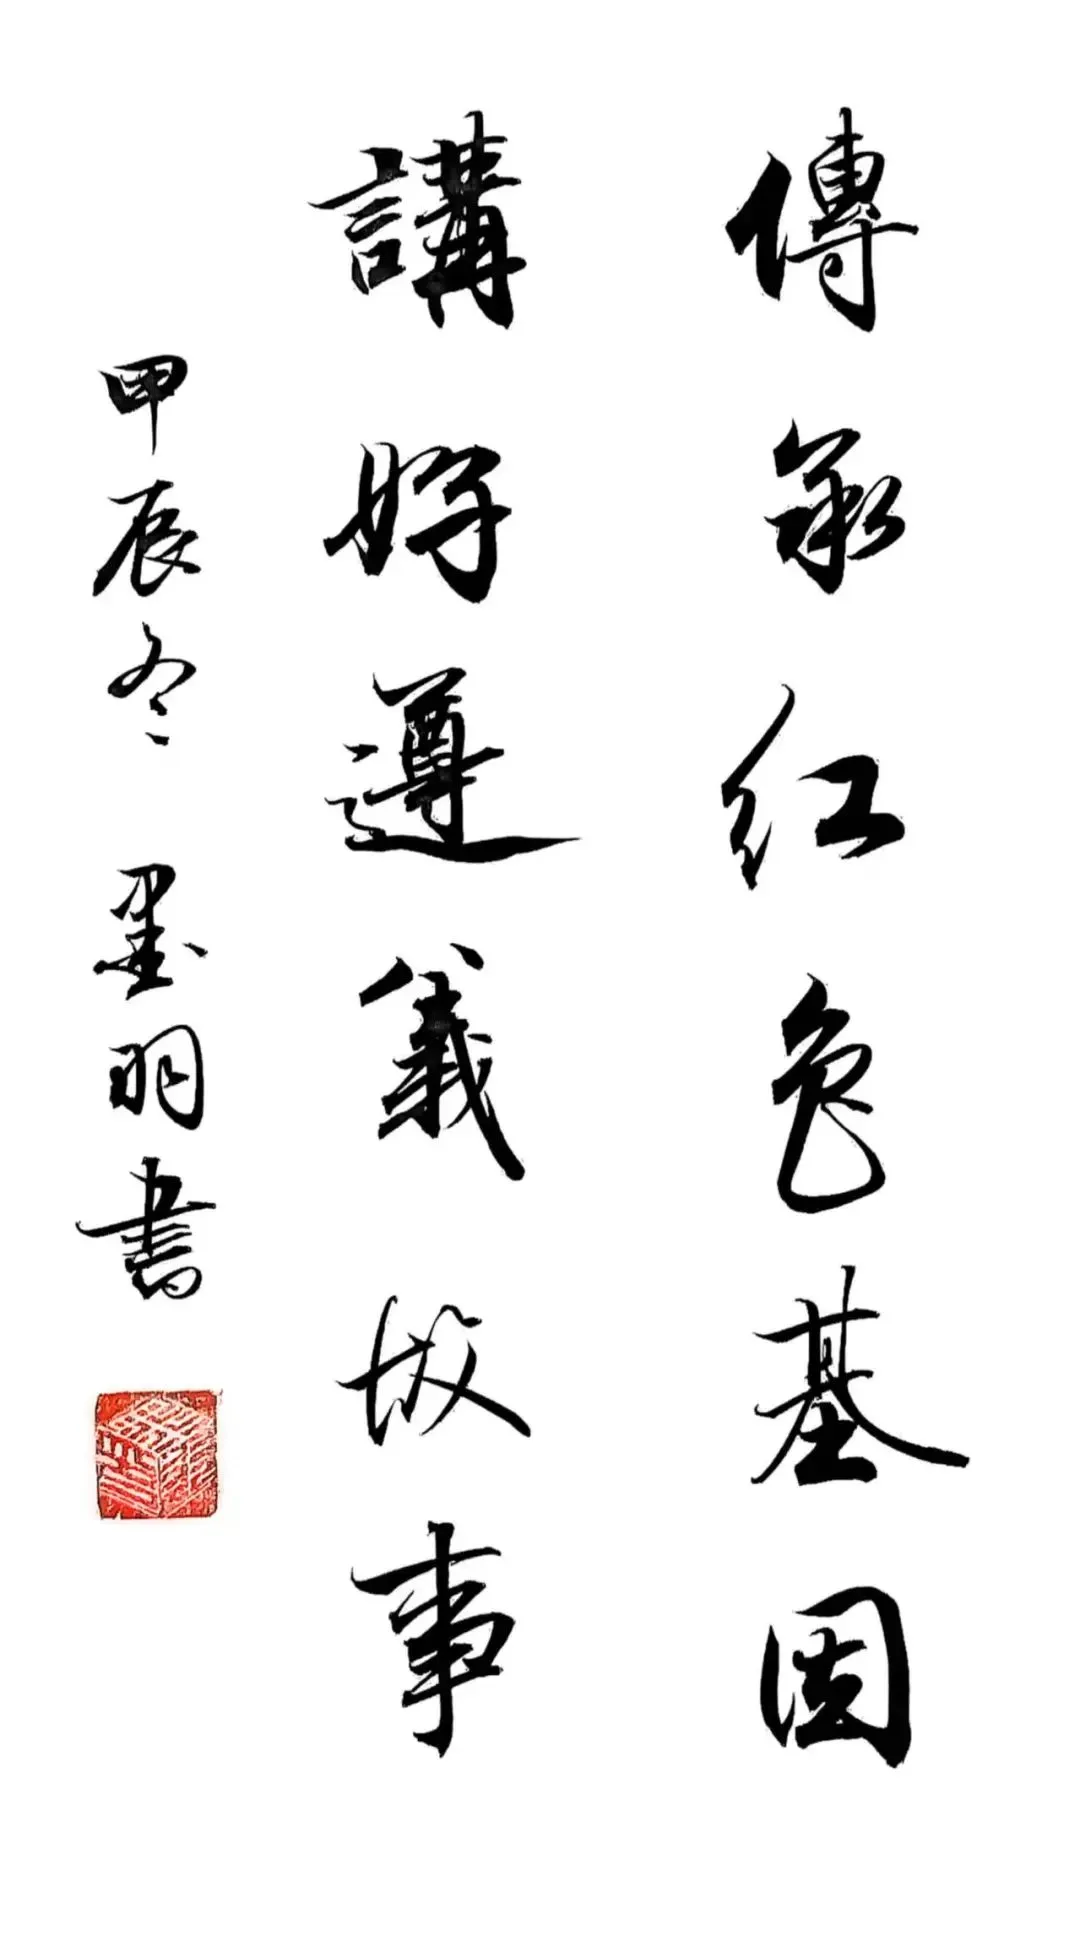 傳承红色基因
講好遵義故事
甲辰冬 墨羽書